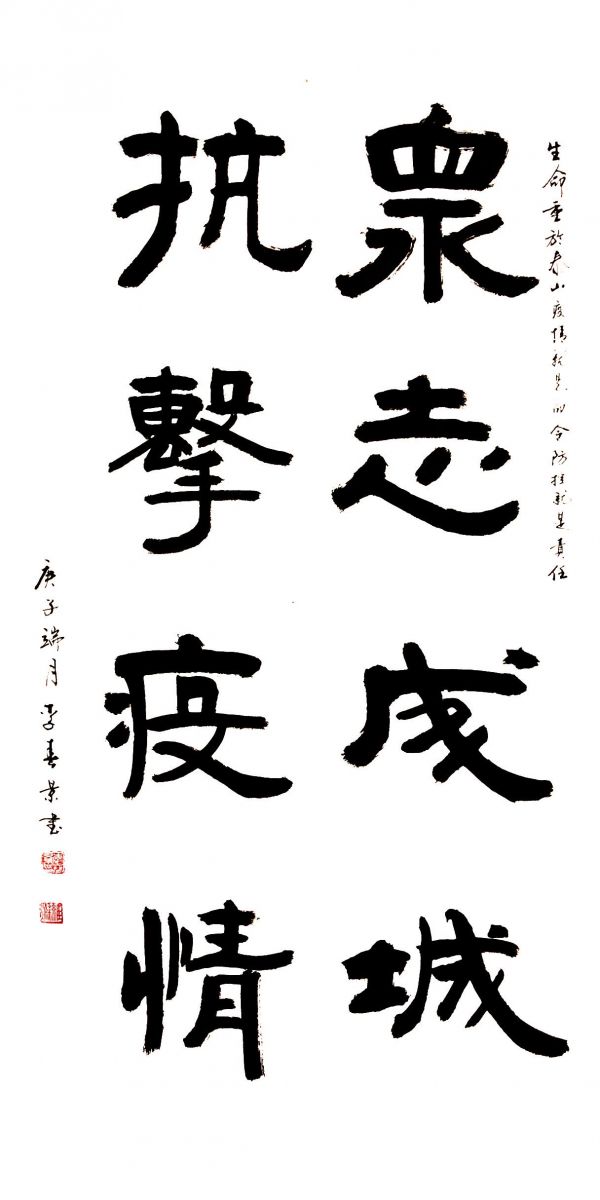 生命重於泰山疫情就是命令防控就是責任
眾志成城
抗擊疫情
庚子端月李春景書